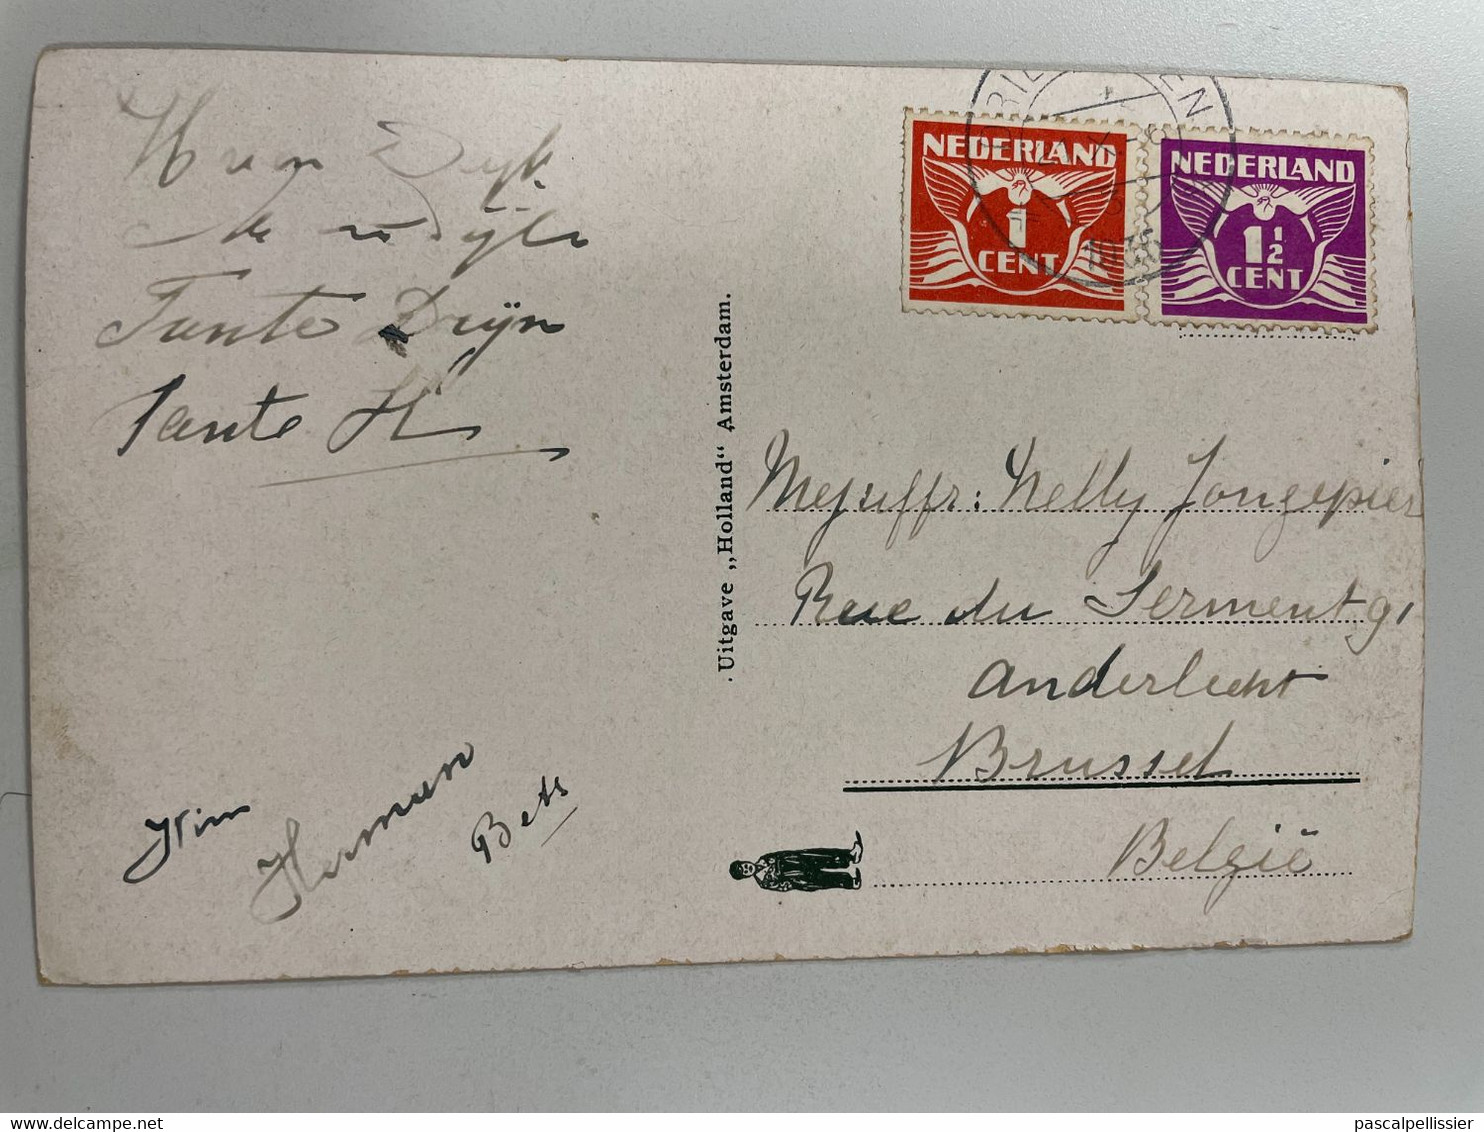 Tante Drijn
Tante H
Wim
Herman
Bets
Uitgave „Holland“ Amsterdam.
NEDERLAND
1
CENT
NEDERLAND
1½
CENT
1935
Mejuffr: Nelly Jongepier
Rue du Serment 91
Anderlecht
Brussel
België
pascalpellissier